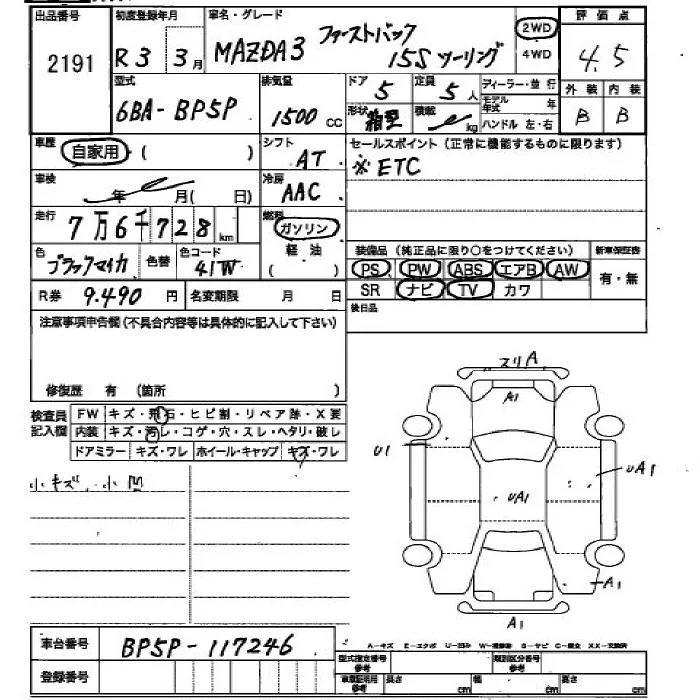 出品番号 初度登録年月 車名・グレード 評価点
2191 R3 3月 MAZDA3 ファーストバック 15S ツーリング 2WD 4WD 4.5
型式 排気量 ドア 定員 ディーラー・並行 外装 内装
6BA-BP5P 1500 CC 5 5人 モデル年式 年 B B
形状 箱型 積載 kg ハンドル 左・右
車歴 自家用 ( ) シフト AT セールスポイント(正常に機能するものに限ります)
※ETC
車検 年 月( 日) 冷房 AAC
走行 7万6千728km 燃料 ガソリン 軽油 ( )
色 ブラックマイカ 色替 色コード 41W
装備品(純正品に限り○をつけてください) 新車保証書
PS PW ABS エアB AW 有・無
SR ナビ TV カワ
R券 9.490円 名変期限 月 日 後日品
注意事項申告欄(不具合内容等は具体的に記入して下さい)
修復歴 有 (箇所 )
検査員記入欄 FW キズ・飛石・ヒビ割・リペア跡・X要
内装 キズ・汚レ・コゲ・穴・スレ・ヘタリ・破レ
ドアミラー キズ・ワレ ホイール・キャップ キズ・ワレ
小キズ、小凹
スリA
A1
U1
UA1
UA1
A1
A1
車台番号 BP5P-117246
A-キズ E-エクボ U-凹み W-補修跡 S-サビ C-腐食 XX-交換済
登録番号 型式指定番号 参考 類別区分番号 参考
車庫証明用 参考 長さ cm 幅 cm 高さ cm